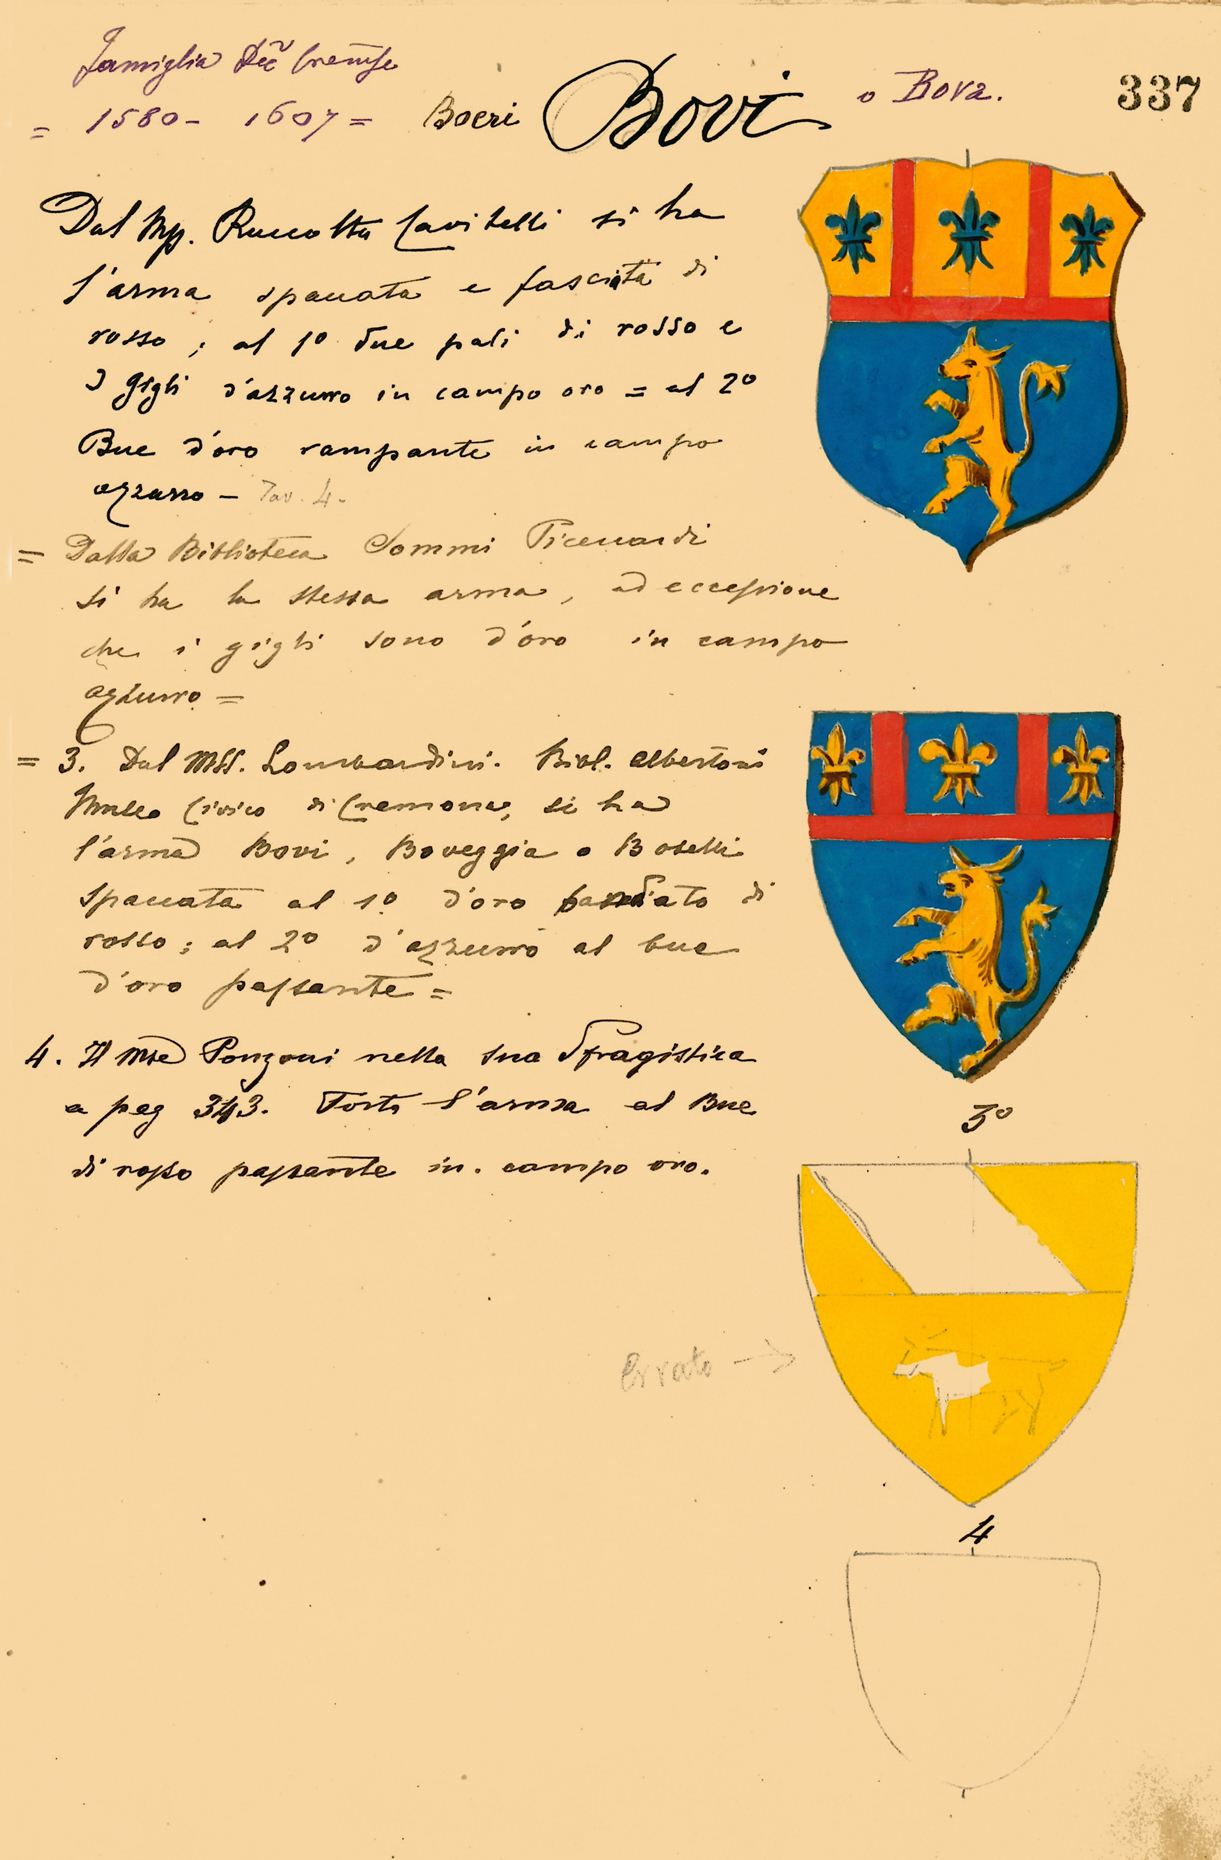 Famiglia Dec̃ Cremse
= 1580 - 1607 = Boeri Bovi o Bova. 337
Dal Mss. Raccolta Cavitelli si ha
l'arma spaccata e fasciata di
rosso ; al 1º due pali di rosso e
3 gigli d'azzurro in campo oro = al 2º
Bue d'oro rampante in campo
azzurro - Tav. 4.
= Dalla Biblioteca Sommi Picenardi
si ha la stessa arma, ad eccessione
che i gigli sono d'oro in campo
azzurro =
= 3. Dal MSS. Lombardini. Bibl. Albertoni
Museo Civico di Cremona, si ha
l'arma Bovi, Boveggia o Boselli
spaccata al 1º d'oro bandato di
rosso ; al 2º d'azzurro al bue
d'oro passante =
4. Il Mse Ponzoni nella sua Sfragistica
a pag 343. Porta l'arma al Bue
di rosso passante in. campo oro.
3º
Errato
4